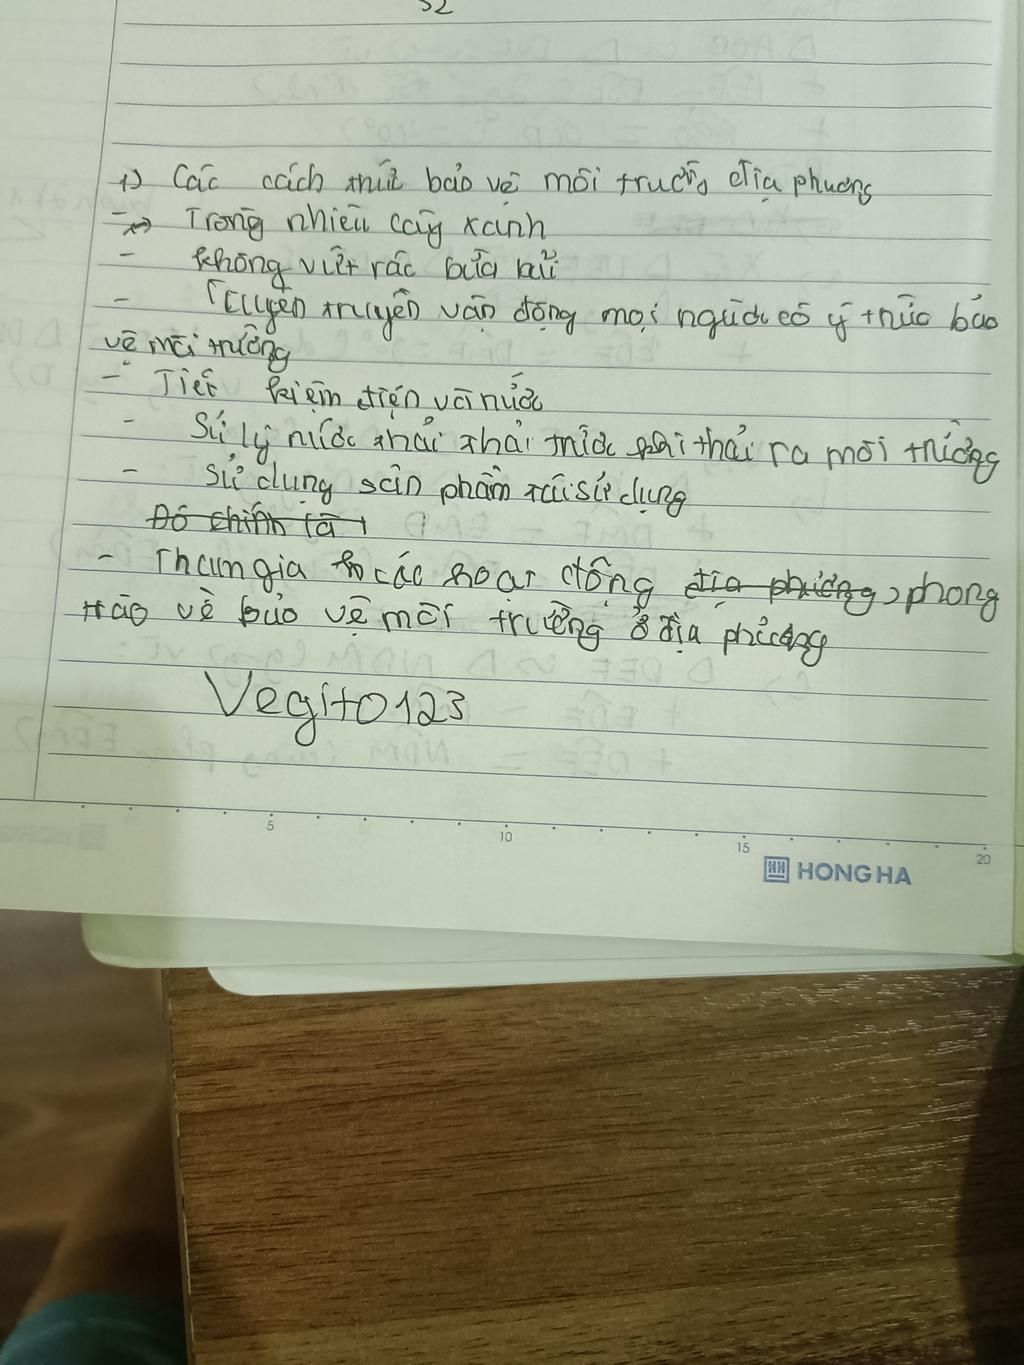 1) Các cách thức bảo vệ môi trường địa phương
-> Trồng nhiều cây xanh
- Không vứt rác bừa bãi
- Tuyên truyền vận động mọi người có ý thức bảo
vệ môi trường
- Tiết kiệm điện và nước
- Sử lý nước thải thải trước khi thải ra môi trường
- Sử dụng sản phẩm tái sử dụng
- Tham gia các hoạt động phong
trào về bảo vệ môi trường ở địa phương
Vegito123
5 10 15 20
HONG HA